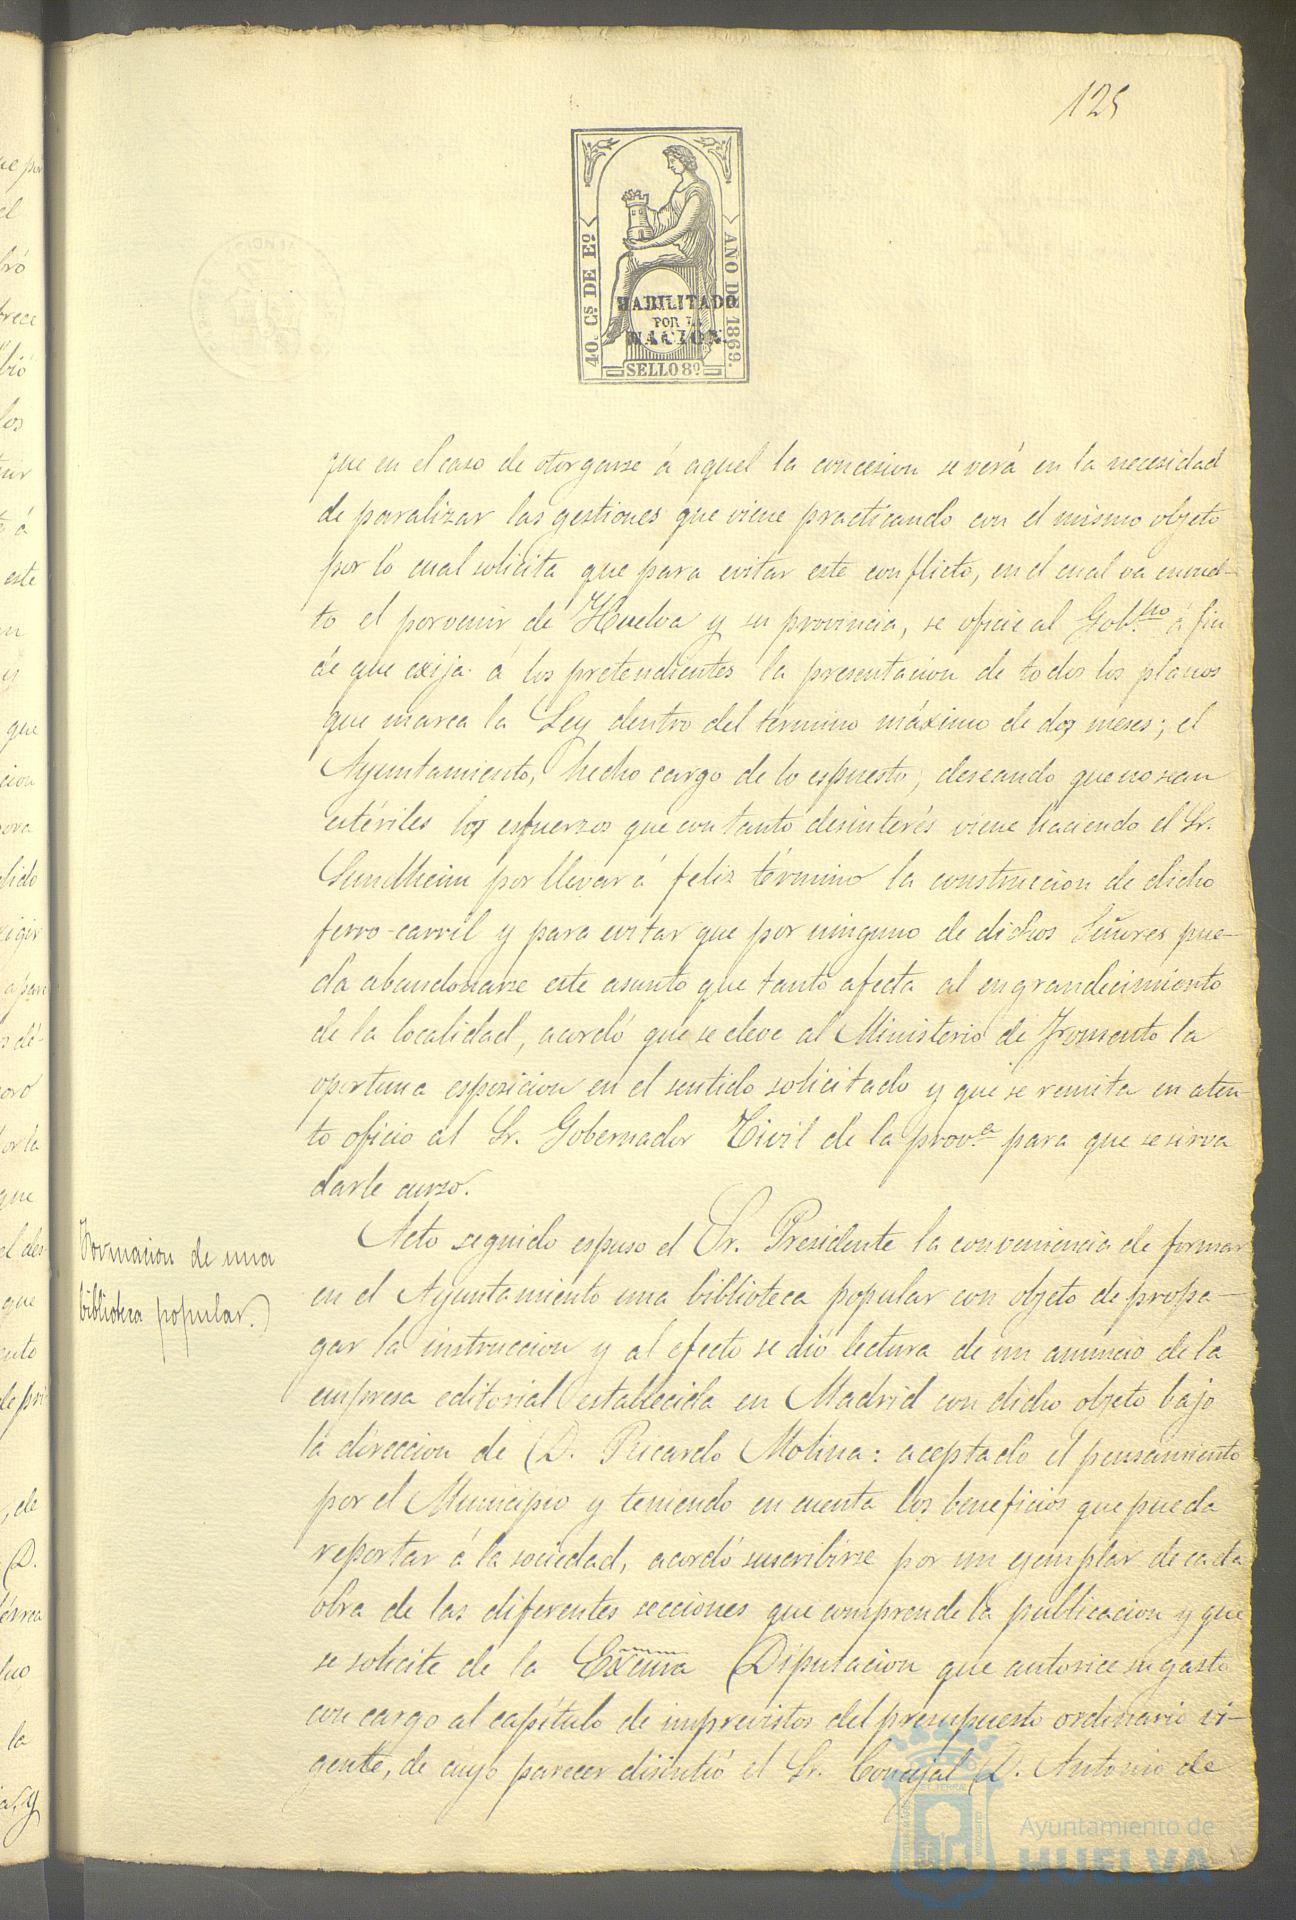 125
40. Cs. DE Eº.
AÑO DE 1869.
HABILITADO
POR LA
NACION.
SELLO 8º
que en el caso de otorgarse á aquel la concesion se verá en la necesidad
de paralizar las gestiones que viene practicando con el mismo objeto
por lo cual solicita que para evitar este conflicto, en el cual va envuel-
to el porvenir de Huelva y su provincia, se oficie al Gob.no á fin
de que exija á los pretendientes la presentacion de todos los planos
que marca la Ley dentro del término máximo de dos meses; el
Ayuntamiento, hecho cargo de lo espuesto, deseando que no sean
estériles los esfuerzos que con tanto desinterés viene haciendo el Sr.
Sundheim por llevar á feliz término la construccion de dicho
ferro-carril y para evitar que por ninguno de dichos Señores pue-
da abandonarse este asunto que tanto afecta al engrandecimiento
de la localidad, acordó que se eleve al Ministerio de Fomento la
oportuna esposicion en el sentido solicitado y que se remita en aten-
to oficio al Sr. Gobernador Civil de la prov.a para que se sirva
darle curso.
Formacion de una
biblioteca popular.
Acto seguido espuso el Sr. Presidente la conveniencia de formar
en el Ayuntamiento una biblioteca popular con objeto de propa-
gar la instruccion y al efecto se dió lectura de un anuncio de la
empresa editorial establecida en Madrid con dicho objeto bajo
la direccion de D. Ricardo Molina: aceptado el pensamiento
por el Municipio y teniendo en cuenta los beneficios que pueda
reportar á la sociedad, acordó suscribirse por un ejemplar de cada
obra de las diferentes secciones que comprende la publicacion y que
se solicite de la Excma Diputacion que autorice su gasto
con cargo al capítulo de imprevistos del presupuesto ordinario vi-
gente, de cuyo parecer disintió el Sr. Concejal D. Antonio de
Ayuntamiento de
HUELVA